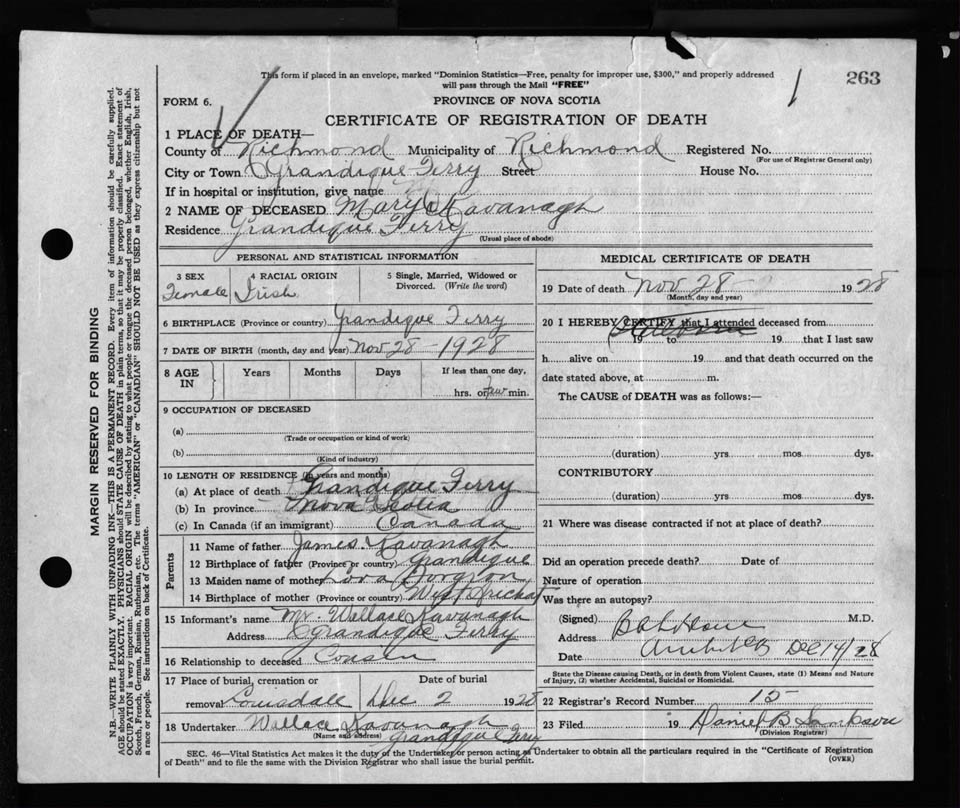 This form if placed in an envelope, marked "Dominion Statistics—Free, penalty for improper use, $300," and properly addressed
will pass through the Mail "FREE"
263
FORM 6.
PROVINCE OF NOVA SCOTIA
CERTIFICATE OF REGISTRATION OF DEATH
1 PLACE OF DEATH—
County of Richmond Municipality of Richmond Registered No.
(For use of Registrar General only)
City or Town Grandique Ferry Street House No.
If in hospital or institution, give name
2 NAME OF DECEASED Mary Kavanagh
Residence Grandique Ferry
(Usual place of abode)
PERSONAL AND STATISTICAL INFORMATION
3 SEX 4 RACIAL ORIGIN 5 Single, Married, Widowed or
Divorced. (Write the word)
Female Irish
6 BIRTHPLACE (Province or country) Grandique Ferry
7 DATE OF BIRTH (month, day and year) Nov 28 - 1928
8 AGE IN Years Months Days If less than one day,
hrs. or few min.
9 OCCUPATION OF DECEASED
(a)
(Trade or occupation or kind of work)
(b)
(Kind of industry)
10 LENGTH OF RESIDENCE (in years and months)
(a) At place of death Grandique Ferry
(b) In province Nova Scotia
(c) In Canada (if an immigrant) Canada
Parents
11 Name of father James Kavanagh
12 Birthplace of father (Province or country) Grandique
13 Maiden name of mother
14 Birthplace of mother (Province or country) West Arichat
15 Informant's name Mr. Wallace Kavanagh
Address Grandique Ferry
16 Relationship to deceased Cousin
17 Place of burial, cremation or Date of burial
removal Louisdale Dec 2 1928
18 Undertaker Wallace Kavanagh
(Name and address) Grandique Ferry
MEDICAL CERTIFICATE OF DEATH
19 Date of death Nov 28 1928
(Month, day and year)
20 I HEREBY CERTIFY that I attended deceased from
19 to 19 that I last saw
h alive on 19 and that death occurred on the
date stated above, at m.
The CAUSE of DEATH was as follows:—
(duration) yrs. mos. dys.
CONTRIBUTORY
(duration) yrs. mos. dys.
21 Where was disease contracted if not at place of death?
Did an operation precede death? Date of
Nature of operation
Was there an autopsy?
(Signed) M.D.
Address
Date Dec 14/28
State the Disease causing Death, or in death from Violent Causes, state (1) Means and Nature
of Injury, (2) whether Accidental, Suicidal or Homicidal.
22 Registrar's Record Number 15
23 Filed 19 Daniel B Sampson
(Division Registrar)
SEC. 46—Vital Statistics Act makes it the duty of the Undertaker or person acting as Undertaker to obtain all the particulars required in the "Certificate of Registration
of Death" and to file the same with the Division Registrar who shall issue the burial permit.
(OVER)
MARGIN RESERVED FOR BINDING
N.B.—WRITE PLAINLY WITH UNFADING INK—THIS IS A PERMANENT RECORD. Every item of information should be carefully supplied.
AGE should be stated EXACTLY. PHYSICIANS should STATE CAUSE OF DEATH in plain terms, so that it may be properly classified. Exact statement of
OCCUPATION is very important. RACIAL ORIGIN will be described by stating to what people or tongue the deceased person belonged, whether English, Irish,
Scotch, French, German, Russian, Ruthenian, etc. The terms "AMERICAN" or "CANADIAN" SHOULD NOT BE USED as they express citizenship but not
a race or people. See instructions on back of Certificate.